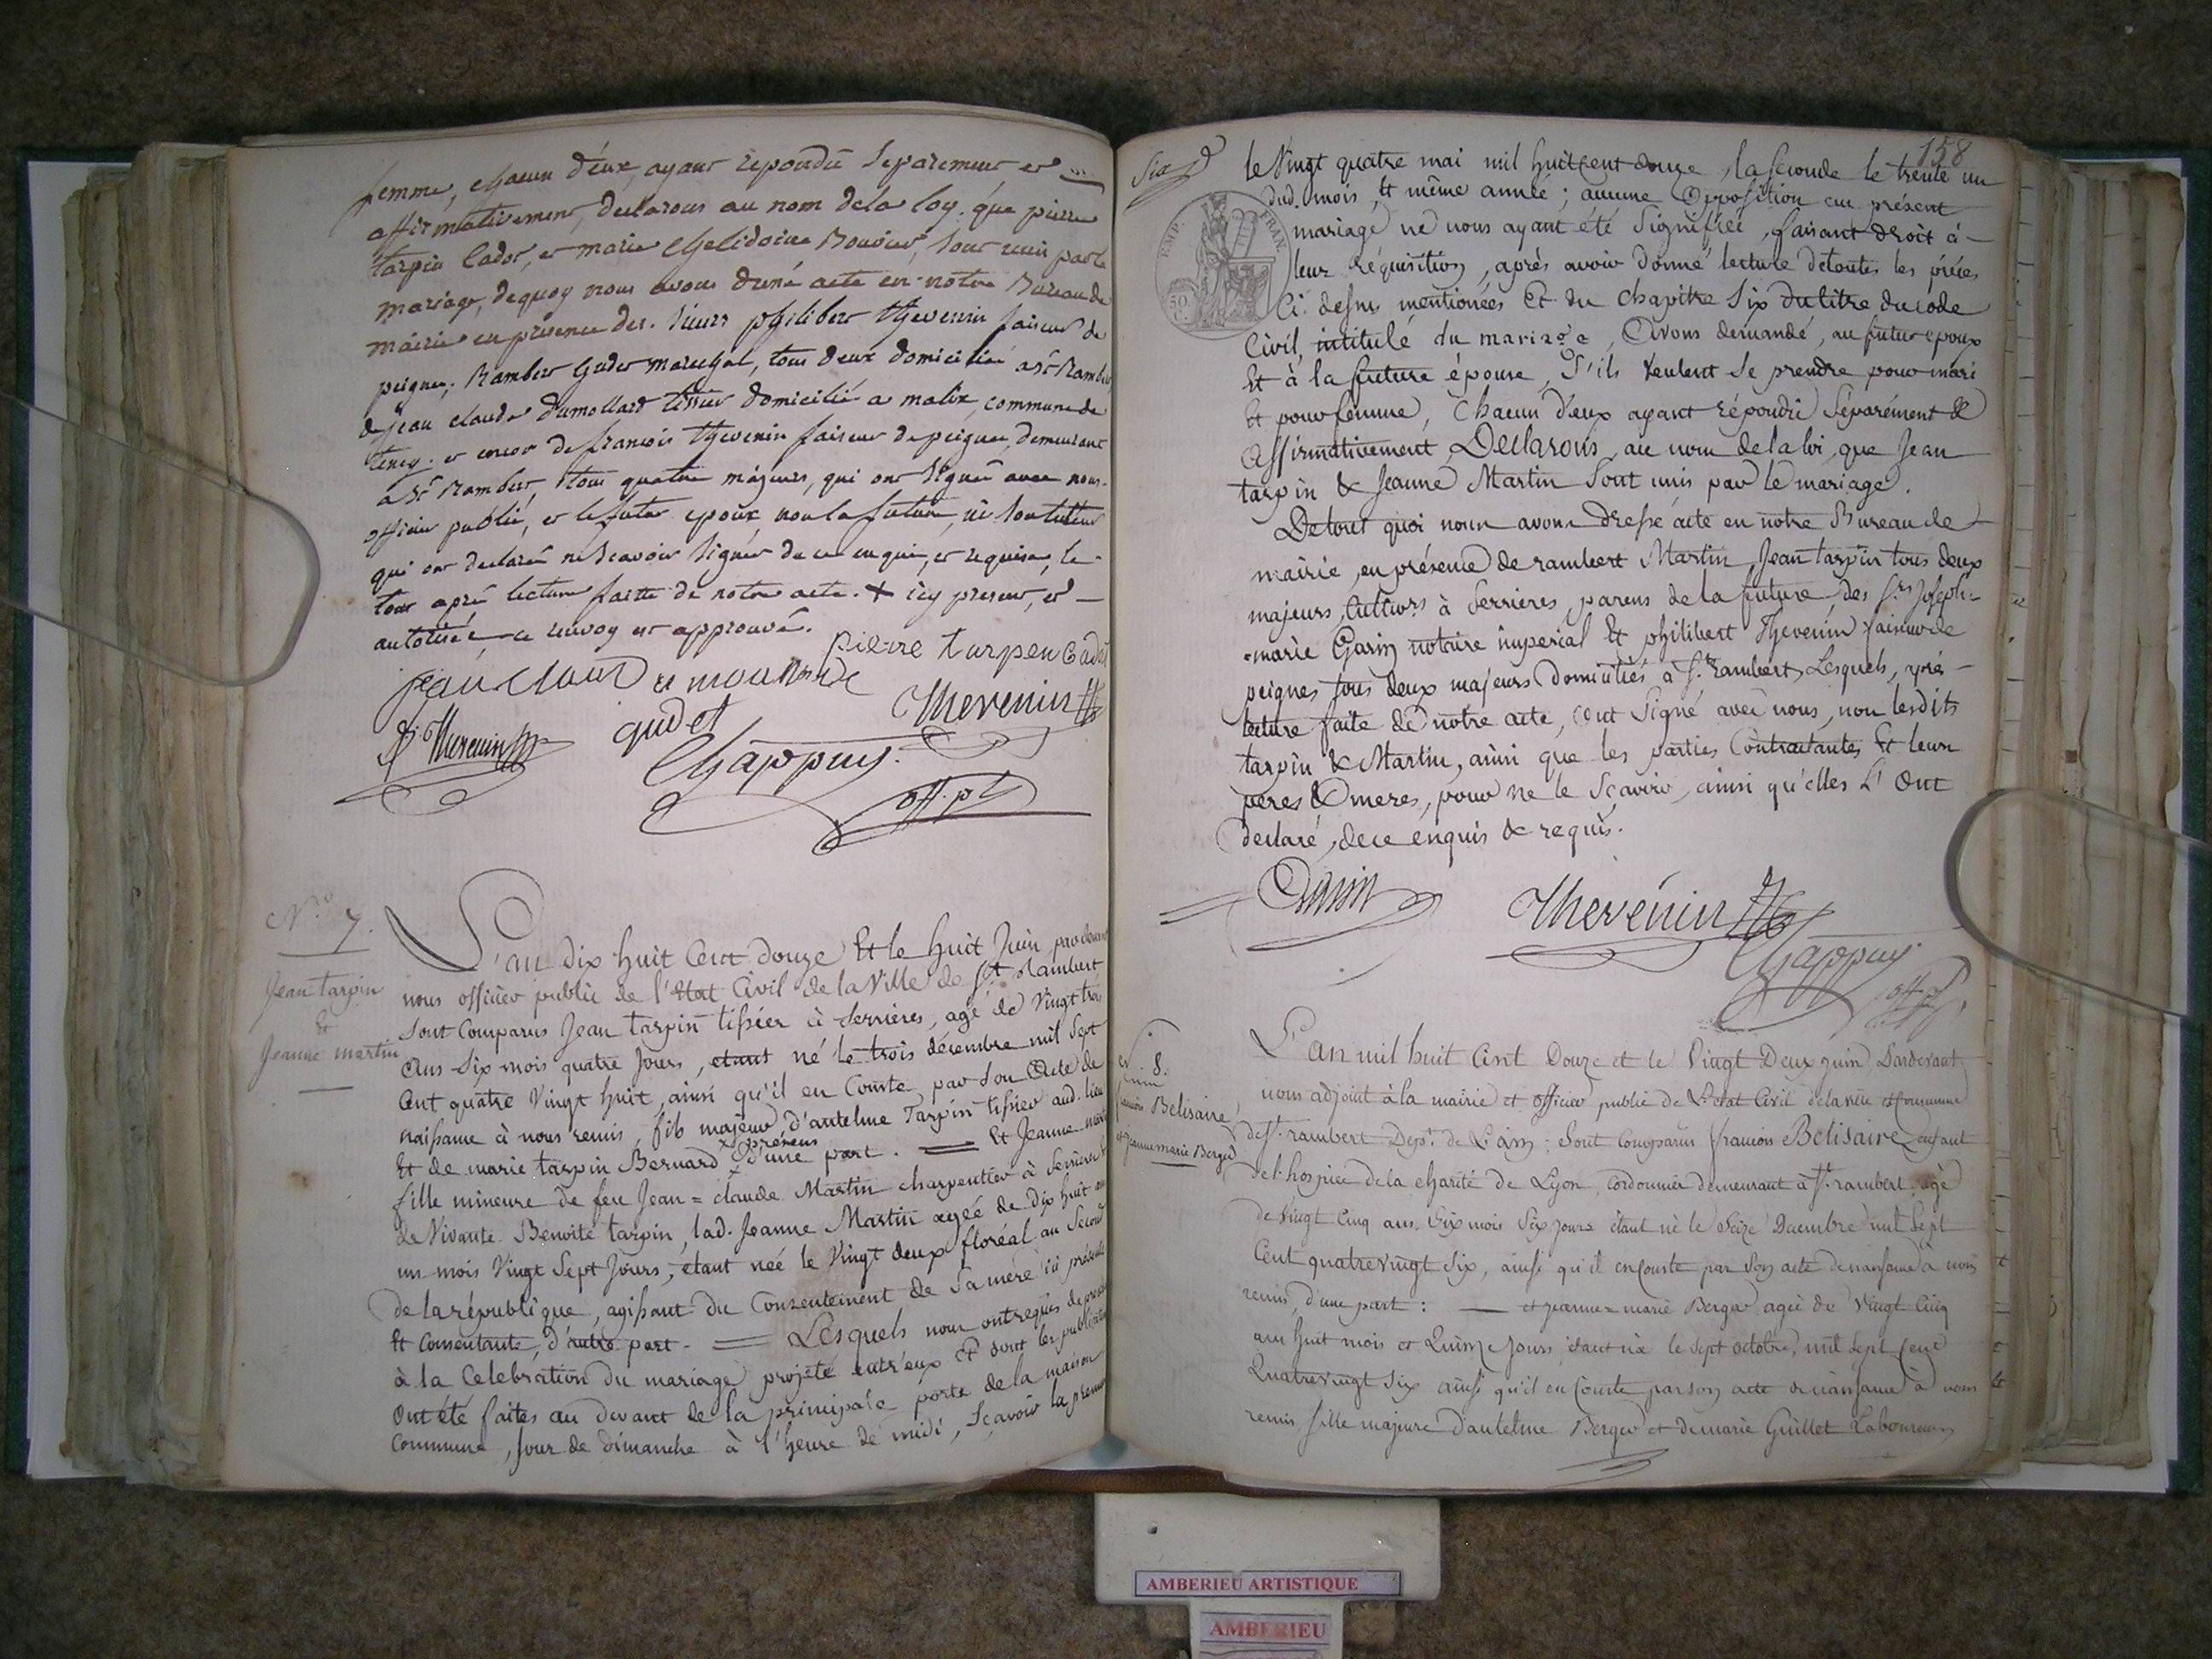 femme, chacun d'eux, ayant repondu separement et
affirmativement, declarons au nom de la loy. que pierre
tarpin Cador, et marie Chelidoine Bouvier, sont unis par le
mariage, de quoy nous avons dréné acte en notre Bureau de
mairie en presence des. sieurs philibert thevenin faiseur de
peignes, Rambert Gudet marechal, tous deux domiciliés a St Rambert
de jean claude dumollard tissier domicilié a malix, commune de
tenay. et encor de francois thevenin faiseur de peignes, demeurant
a St Rambert, tous quatre majeurs, qui ont signés avec nous.
officier public, et le futur epoux, non la future, ni son tuteur
qui ont declarés ne scavoir signer de ce enquis, et requis, le
tout aprés lecture faitte de notre acte. + icy present, et —
autorisée — ce renvoy est approuvé.
pierre tarpen Cadet
jean Claud du moullard
thevenin
f. thevenin
gudet
Chappuy.
off. pl
No 7.
Jean tarpin
&
Jeanne martin
L'an dix huit Cent douze Et le huit Juin par devant
nous officier public de l'Etat Civil de la Ville de St Rambert
sont Comparus Jean tarpin tissier à Serrières, agé de Vingt trois
ans six mois quatre jours, etant né le trois décembre mil sept
Cent quatre Vingt huit, ainsi qu'il en Conste par son Acte de
naissance à nous remis, fils majeur d'antelme Tarpin tissier aud. lieu
x présens
Et de marie tarpin Bernard x d'une part. = Et Jeanne martin
fille mineure de feu Jean = claude Martin charpentier à Serrieres &
de Vivante Benoite tarpin, lad. Jeanne Martin agée de dix huit ans
un mois Vingt sept Jours, etant née le Vingt deux floréal an Second
de la république, agissant du Consentement de sa mère ici présente
Et Consentante, d'autre part. = Lesquels nous ont requis de proceder
à la Celebration du mariage projeté entr'eux Et dont les publications
ont été faites au devant de la principale porte de la maison
Commune, jour de dimanche à l'heure de midi, Sçavoir la premiere
158
Six
TEMP. FRAN.
50
le Vingt quatre mai mil huit cent douze, la seconde le trente un
dud. mois, Et même année; aucune Opposition au présent
mariage ne nous ayant été signifiée, faisant droit à —
leur réquisition, après avoir donné lecture de toutes les pièces
Ci. dessus mentionées Et du chapitre Six du titre du code
Civil, intitulé du mariage, Avons demandé, au futur epoux
Et à la future épouse, S'ils veulent se prendre pour mari
Et pour femme, Chacun d'eux ayant répondu séparément &
Affirmativement, Declarons, au nom de la loi, que Jean
tarpin & Jeanne Martin sont unis par le mariage.
De tout quoi nous avons dressé acte en notre Bureau de
mairie, en présence de rambert Martin, Jean tarpin tous deux
majeurs, Cultivrs à Serrieres, parens de la future, des Srs Joseph=
=marie Garin notaire imperial Et philibert Thevenin faiseur de
peignes tous deux majeurs Domiciliés à St rambert, Lesquels, après
lecture faite de notre acte, ont signé avec nous, non lesdits
tarpin & Martin, ainsi que les parties Contractantes Et leurs
peres & meres, pour ne le sçavoir, ainsi qu'elles L'ont
declaré, de ce enquis & requis.
Garin
Thevenin
Chappuy
off. pl.
No 8.
françois Belisaire
et jeanne marie Berger
L'an mil huit Cent Douze et le Vingt Deux juin Pardevant
nous adjoint à la mairie et officier public de L'etat Civil de la ville et Commune
de St. rambert Dept. de L'ain; sont Comparus françois Belisaire enfant
de l'hospice de la charité de Lyon, Cordonnier demeurant à St. rambert, agé
de vingt Cinq ans, Six mois Six jours étant né le Seize Decembre mil sept
Cent quatrevingt Six, ainsi qu'il en Conste par Son acte de naissance à nous
remis, d'une part: — et jeanne=marie Berger agée de vingt Cinq
ans huit mois et Quinze Jours, étant née le sept octobre, mil sept Cent
Quatrevingt Six ainsi qu'il en Conste par son acte de naissance à nous
remis fille majeure d'antelme Berger et de marie Guillet Laboureurs
AMBERIEU ARTISTIQUE
AMBERIEU